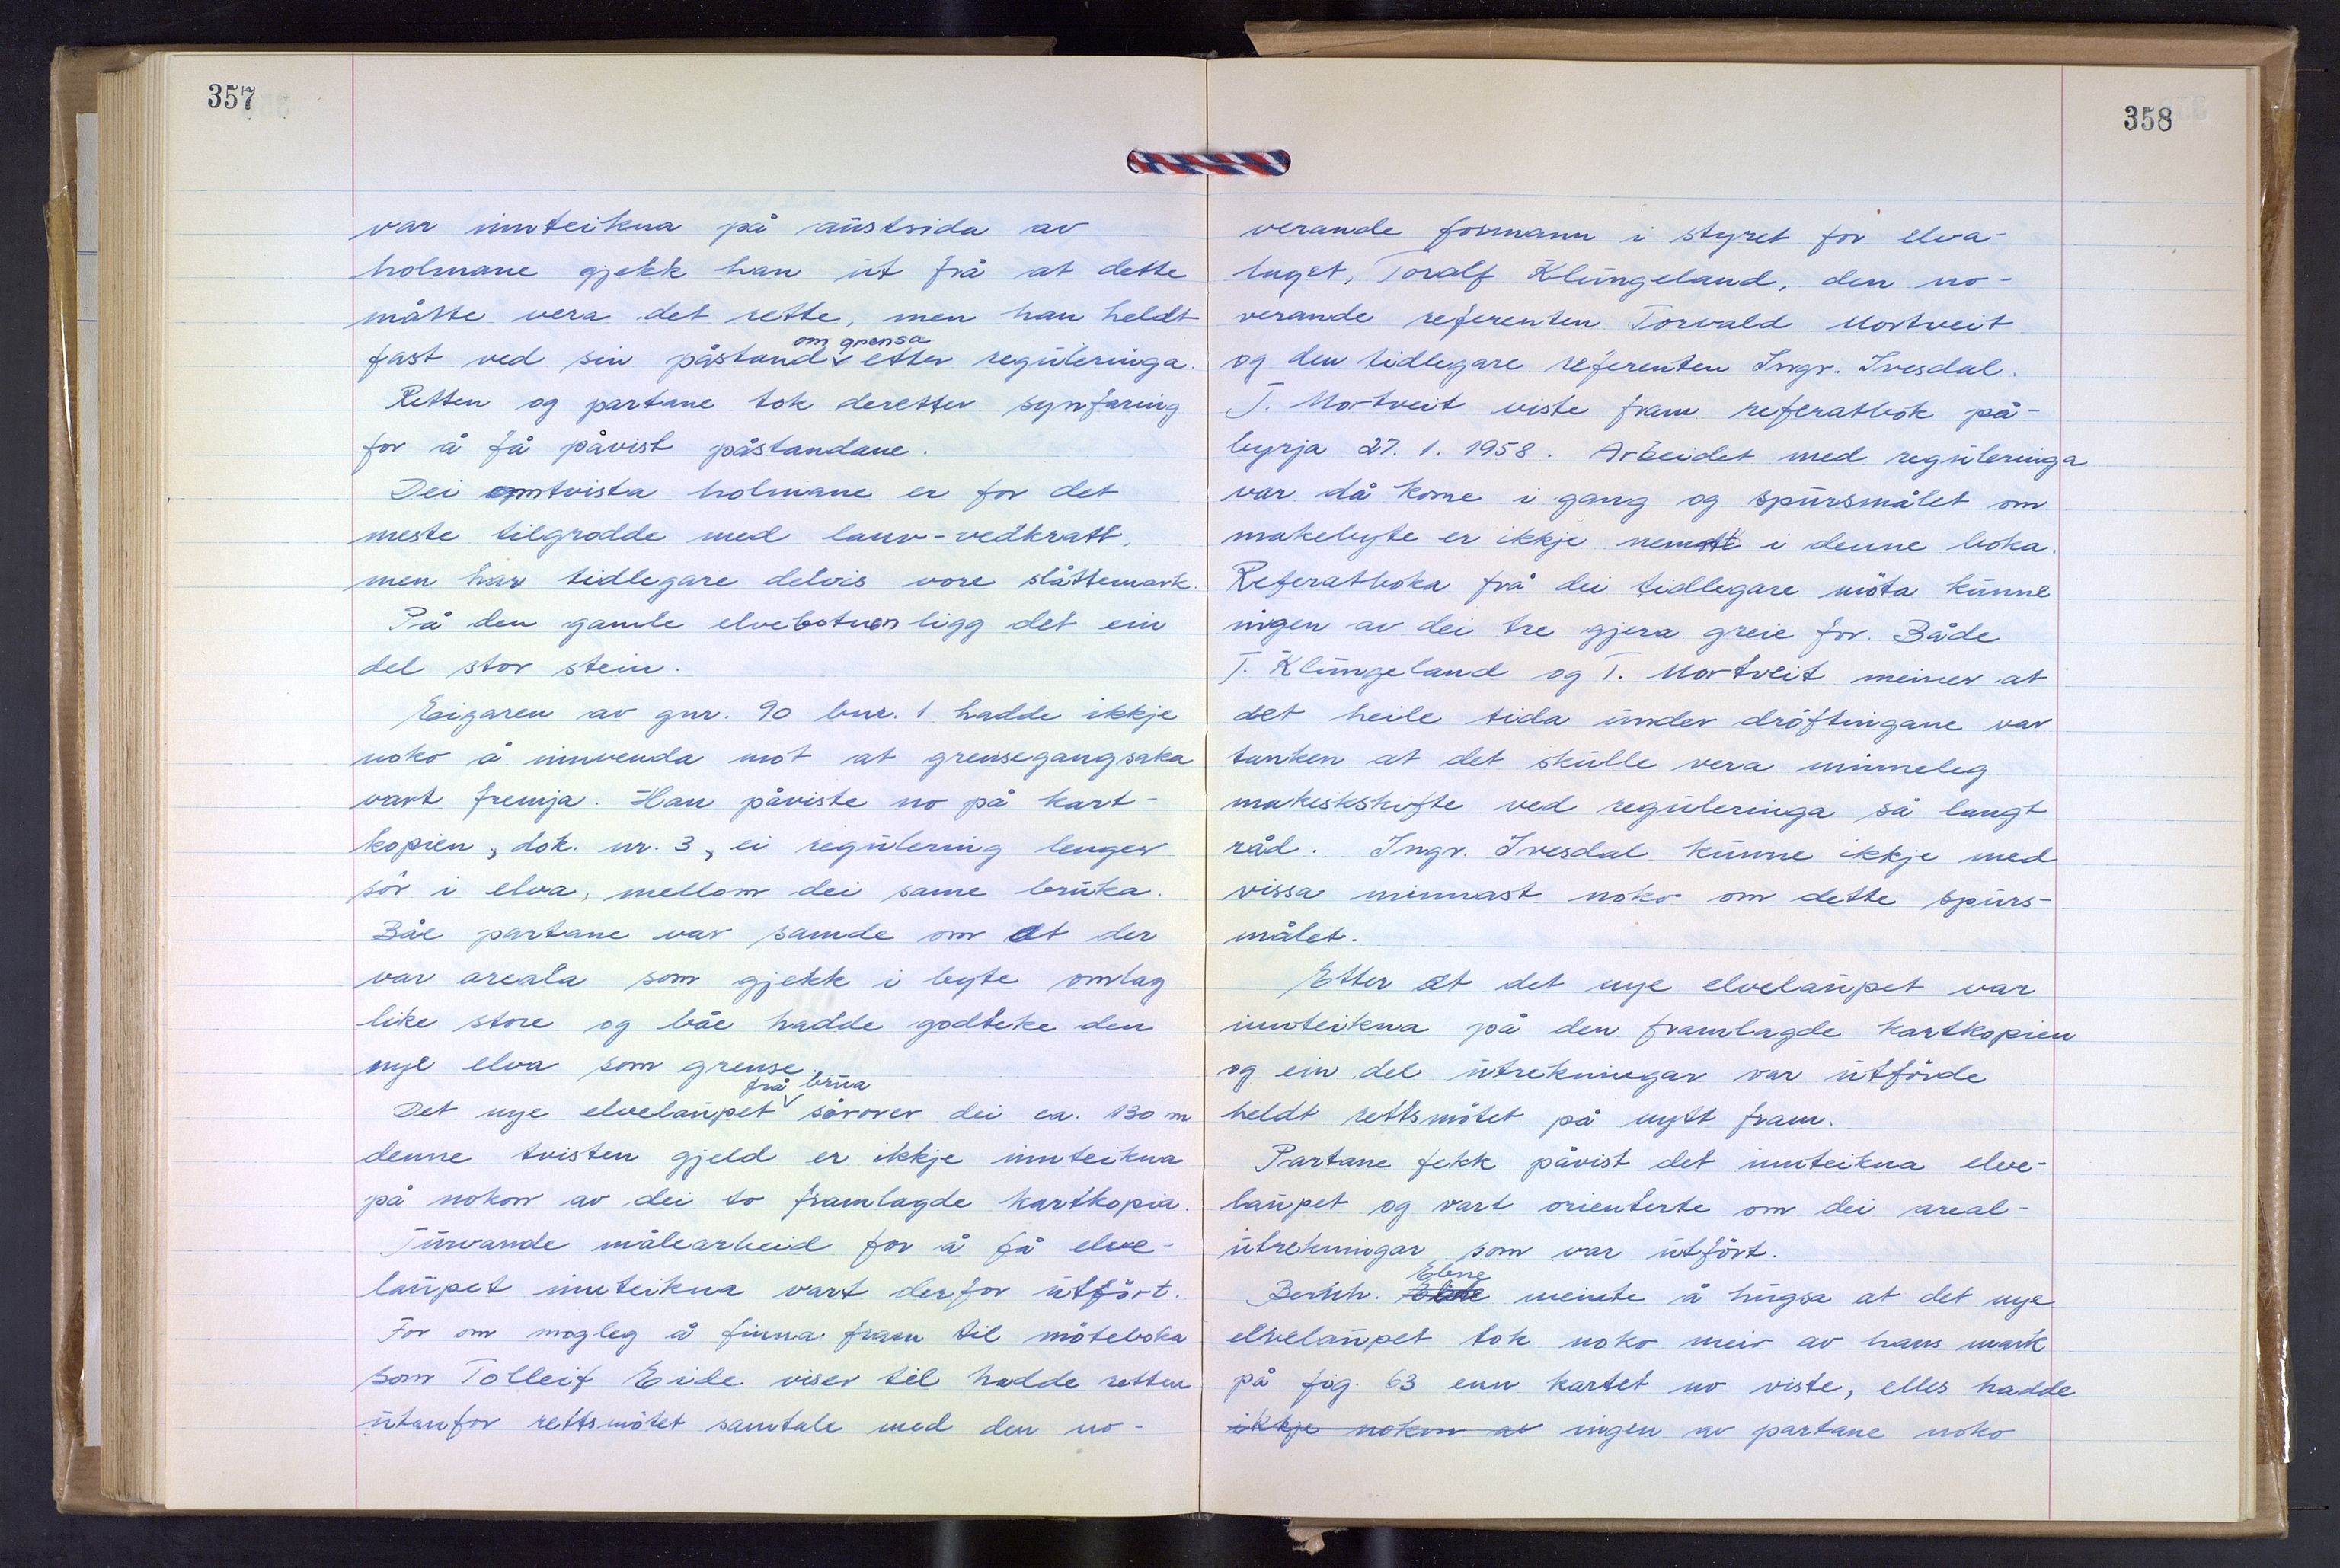 357
var innteikna på austsida av
holmane gjekk han ut frå at dette
måtte vera det rette, men han heldt
fast ved sin påstand om grensa etter reguleringa.
Retten og partane tok deretter synfaring
for å få påvist påstandane.
Dei omtvista holmane er for det
meste tilgrodde med lauv-vedkratt,
men har tidlegare delvis vore slåttemark.
På den gamle elvebotnen ligg det ein
del stor stein.
Eigaren av gnr. 90 bnr. 1 hadde ikkje
noko å innvenda mot at grensegangsaka
vart fremja. Han påviste no på kart-
kopien, dok. nr. 3, ei regulering lenger
sør i elva, mellom dei same bruka.
Båe partane var samde om at der
var areala som gjekk i byte omlag
like store og båe hadde godteke den
nye elva som grense.
Det nye elvelaupet frå brua sørover dei ca. 130 m
denne tvisten gjeld er ikkje innteikna
på nokon av dei to framlagde kartkopia.
Turvande målearbeid for å få elve-
laupet innteikna vart derfor utført.
For om mogleg å finna fram til møteboka
som Tolleif Eide viser til hadde retten
utanfor rettsmøtet samtale med den no-
358
verande formann i styret for elva-
laget, Toralf Klungeland, den no-
verande referenten Torvald Mortveit
og den tidlegare referenten Ingv. Ivesdal.
T. Mortveit viste fram referatbok på-
byrja 27. 1. 1958. Arbeidet med reguleringa
var då kome i gang og spursmålet om
makebyte er ikkje nemnt i denne boka.
Referatboka frå dei tidlegare møta kunne
ingen av dei tre gjera greie for. Både
T. Klungeland og T. Mortveit meiner at
det heile tida under drøftingane var
tanken at det skulle vera minneleg
makeskskifte ved reguleringa så langt
råd. Ingv. Ivesdal kunne ikkje med
vissa minnast noko om dette spurs-
målet.
Etter at det nye elvelaupet var
innteikna på den framlagde kartkopien
og ein del utrekningar var utførde
heldt rettsmøtet på nytt fram.
Partane fekk påvist det innteikna elve-
laupet og vart orienterte om dei areal-
utrekningar som var utført.
Bernh. Elme meinte å hugsa at det nye
elvelaupet tok noko meir av hans mark
på fig. 63 enn kartet no viste, elles hadde
ikkje nokon av ingen av partane noko